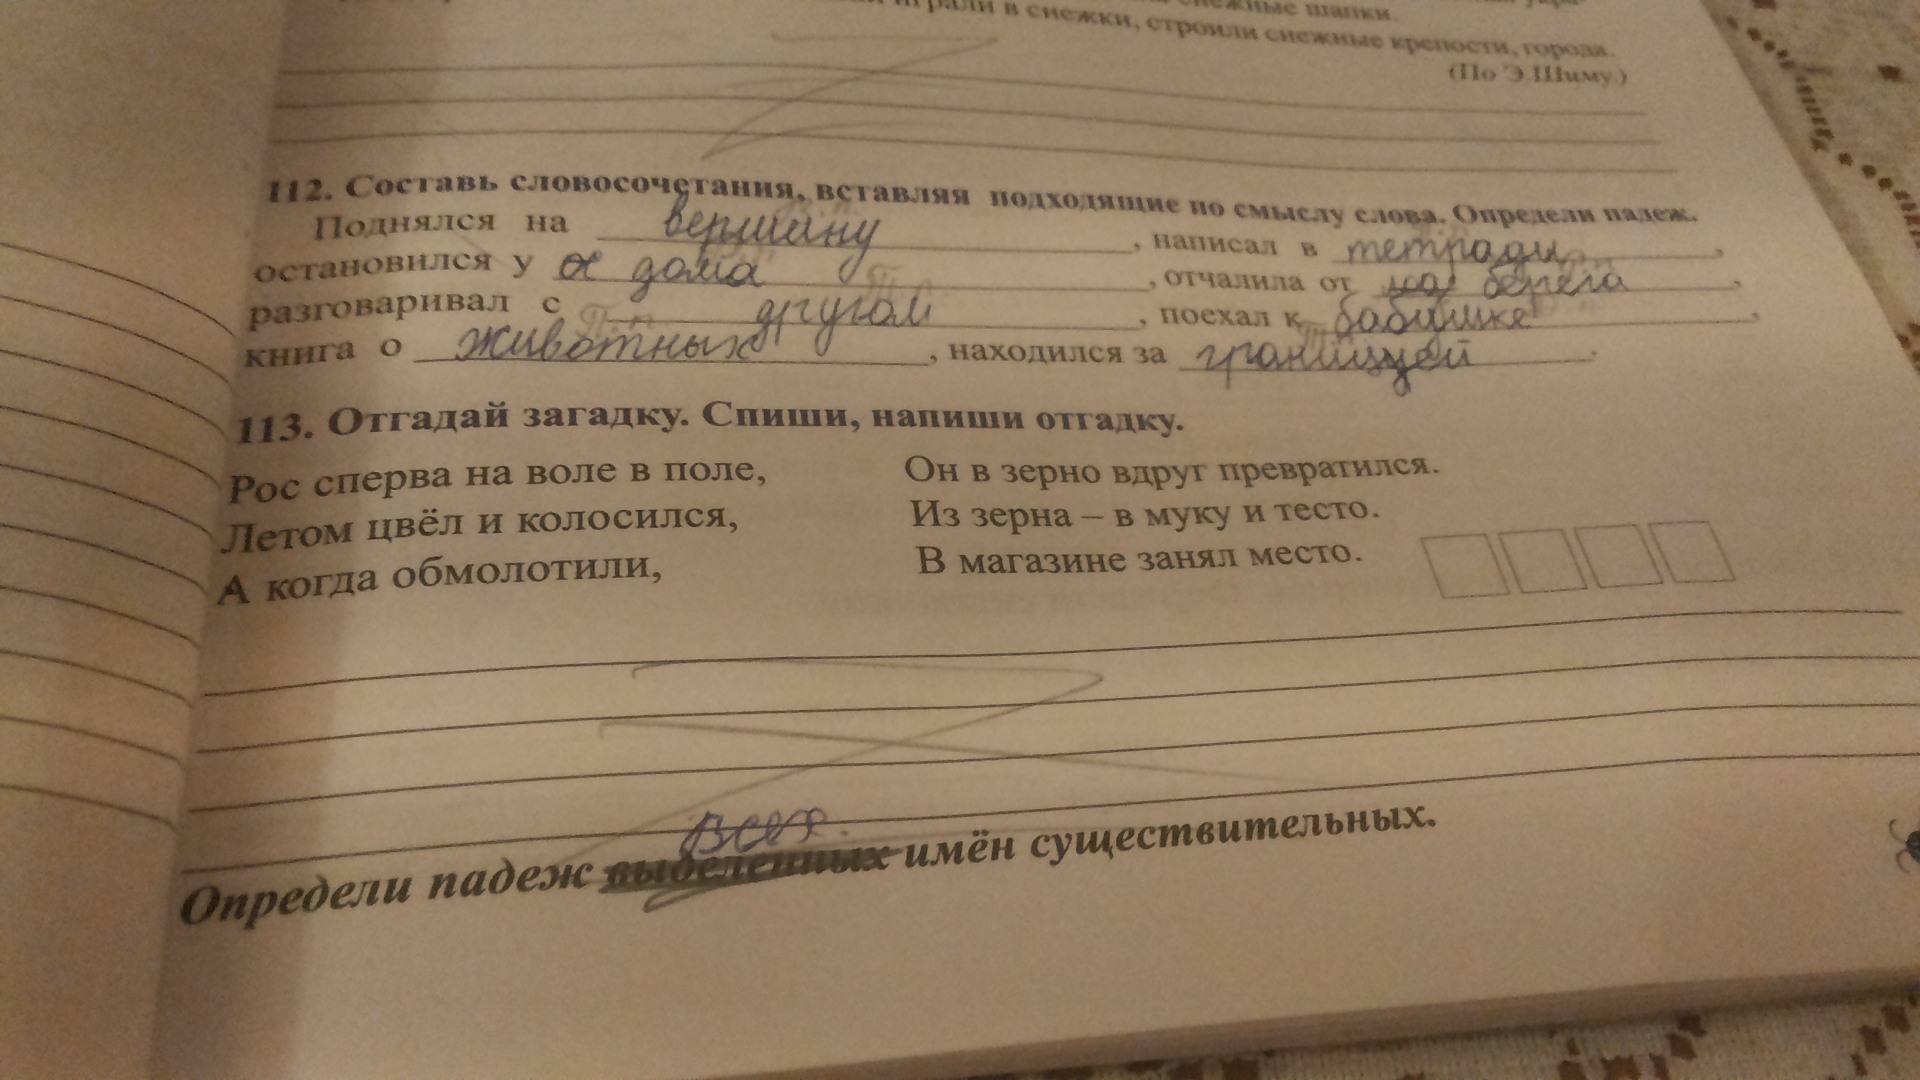 снежные шапки.
играли в снежки, строили снежные крепости, города.
(По Э.Шиму.)
112. Составь словосочетания, вставляя подходящие по смыслу слова. Определи падеж.
Поднялся на вершину, написал в тетради,
остановился у дома, отчалила от берега,
разговаривал с другом, поехал к бабушке,
книга о животных, находился за границей.
113. Отгадай загадку. Спиши, напиши отгадку.
Рос сперва на воле в поле,
Летом цвёл и колосился,
А когда обмолотили,
Он в зерно вдруг превратился.
Из зерна – в муку и тесто.
В магазине занял место.
всех
Определи падеж выделенных имён существительных.